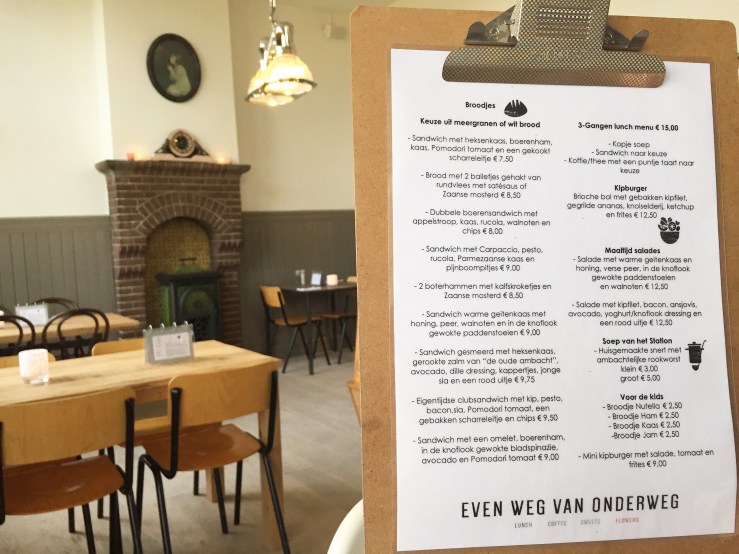 Broodjes
Keuze uit meergranen of wit brood
- Sandwich met heksenkaas, boerenham,
kaas, Pomodori tomaat en een gekookt
scharreleitje € 7,50
- Brood met 2 balletjes gehakt van
rundvlees met satésaus of
Zaanse mosterd € 8,50
- Dubbele boerensandwich met
appelstroop, kaas, rucola, walnoten en
chips € 8,00
- Sandwich met Carpaccio, pesto,
rucola, Parmezaanse kaas en
pijnboompitjes € 9,00
- 2 boterhammen met kalfskroketjes en
Zaanse mosterd € 8,50
- Sandwich warme geitenkaas met
honing, peer, walnoten en in de knoflook
gewokte paddenstoelen € 9,00
- Sandwich gesmeerd met heksenkaas,
gerookte zalm van "de oude ambacht",
avocado, dille dressing, kappertjes, jonge
sla en een rood uitje € 9,75
- Eigentijdse clubsandwich met kip, pesto,
bacon,sla, Pomodori tomaat, een
gebakken scharreleitje en chips € 9,50
- Sandwich met een omelet, boerenham,
in de knoflook gewokte bladspinazie,
avocado en Pomodori tomaat € 9,00
3-Gangen lunch menu € 15,00
- Kopje soep
- Sandwich naar keuze
- Koffie/thee met een puntje taart naar
keuze
Kipburger
Brioche bol met gebakken kipfilet,
gegrilde ananas, knolselderij, ketchup
en frites € 12,50
Maaltijd salades
- Salade met warme geitenkaas en
honing, verse peer, in de knoflook
gewokte paddenstoelen en
walnoten € 12,50
- Salade met kipfilet, bacon, ansjovis,
avocado, yoghurt/knoflook dressing en
een rood uitje € 12,50
Soep van het Station
- Huisgemaakte snert met
ambachtelijke rookworst
klein € 3,00
groot € 5,00
Voor de kids
- Broodje Nutella € 2,50
- Broodje Ham € 2,50
- Broodje Kaas € 2,50
-Broodje Jam € 2,50
- Mini kipburger met salade, tomaat en
frites € 9,00
EVEN WEG VAN ONDERWEG
LUNCH COFFEE SWEETS FLOWERS